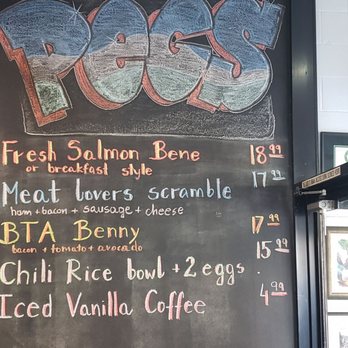 PEGS
Fresh Salmon Bene 18 99
or breakfast style
Meat lovers scramble 17 99
ham + bacon + sausage + cheese
BTA Benny 17 99
bacon + tomato + avocado
Chili Rice bowl + 2 eggs 15 99
Iced Vanilla Coffee 4 99